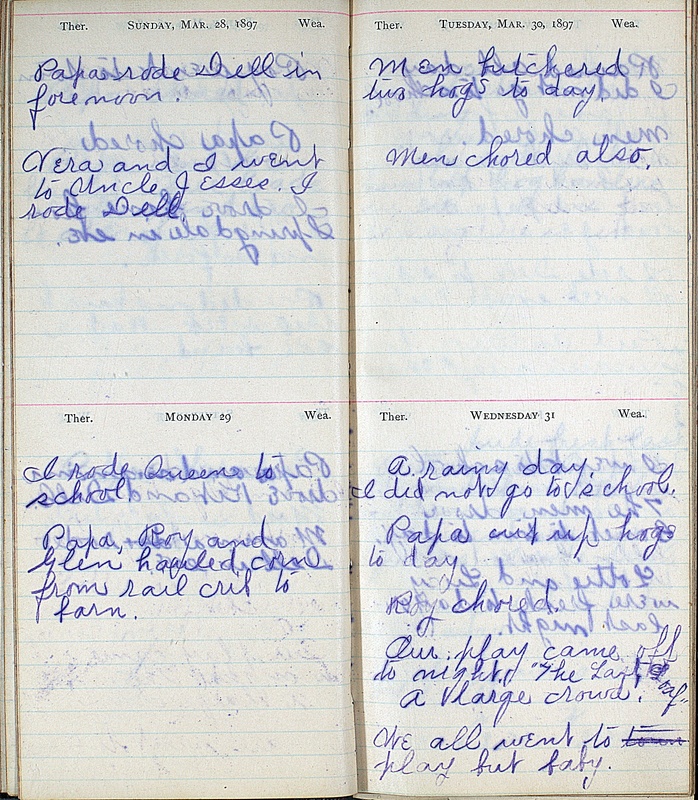 Ther. SUNDAY, MAR. 28, 1897 Wea.
Papa rode Dell in
forenoon.
Vera and I went
to Uncle Jesses. I
rode Dell.
Ther. MONDAY 29 Wea.
I rode Queene to
school
Papa, Roy and
Glen hauled corn
from rail crib to
barn.
Ther. TUESDAY, MAR. 30, 1897 Wea.
Men butchered
two hogs to day
Men chored also.
Ther. WEDNESDAY 31 Wea.
A rainy day.
I did not go to school.
Papa cut up hogs
to day
Roy chored.
Our play came off
to night, "The Last Loaf"
A large crowd.
We all went to town
play but baby.